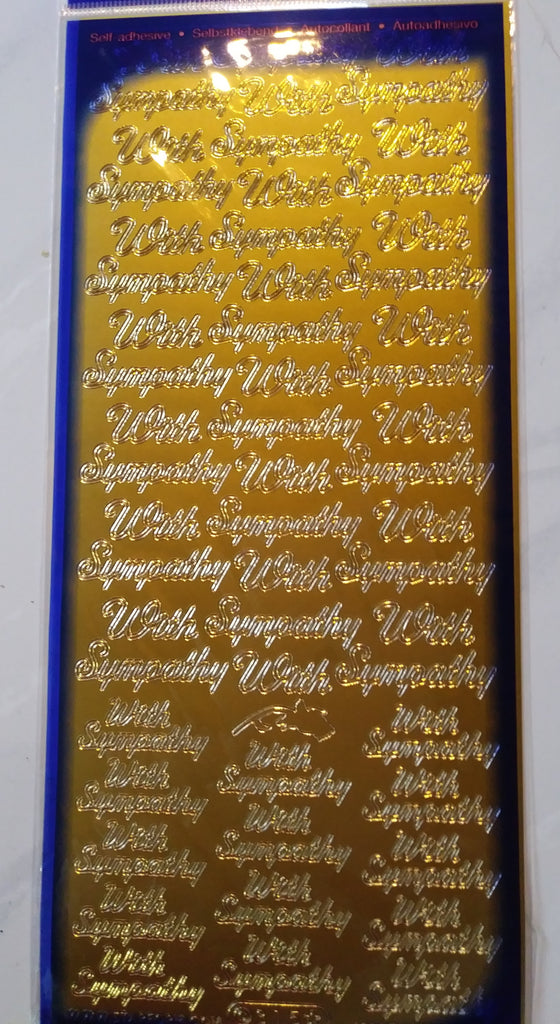 Self-adhesive • Selbstklebend • Autocollant • Autoadhesivo
Sympathy With Sympathy
With Sympathy With
Sympathy With Sympathy
With Sympathy With
Sympathy With Sympathy
With Sympathy With
Sympathy With Sympathy
With Sympathy With
Sympathy With Sympathy
With Sympathy With
Sympathy With Sympathy
With Sympathy With
Sympathy With Sympathy
With With
Sympathy With Sympathy
With Sympathy With
Sympathy With Sympathy
With Sympathy With
Sympathy With Sympathy
With Sympathy With
Sympathy With Sympathy
With Sympathy With
Sympathy Sympathy